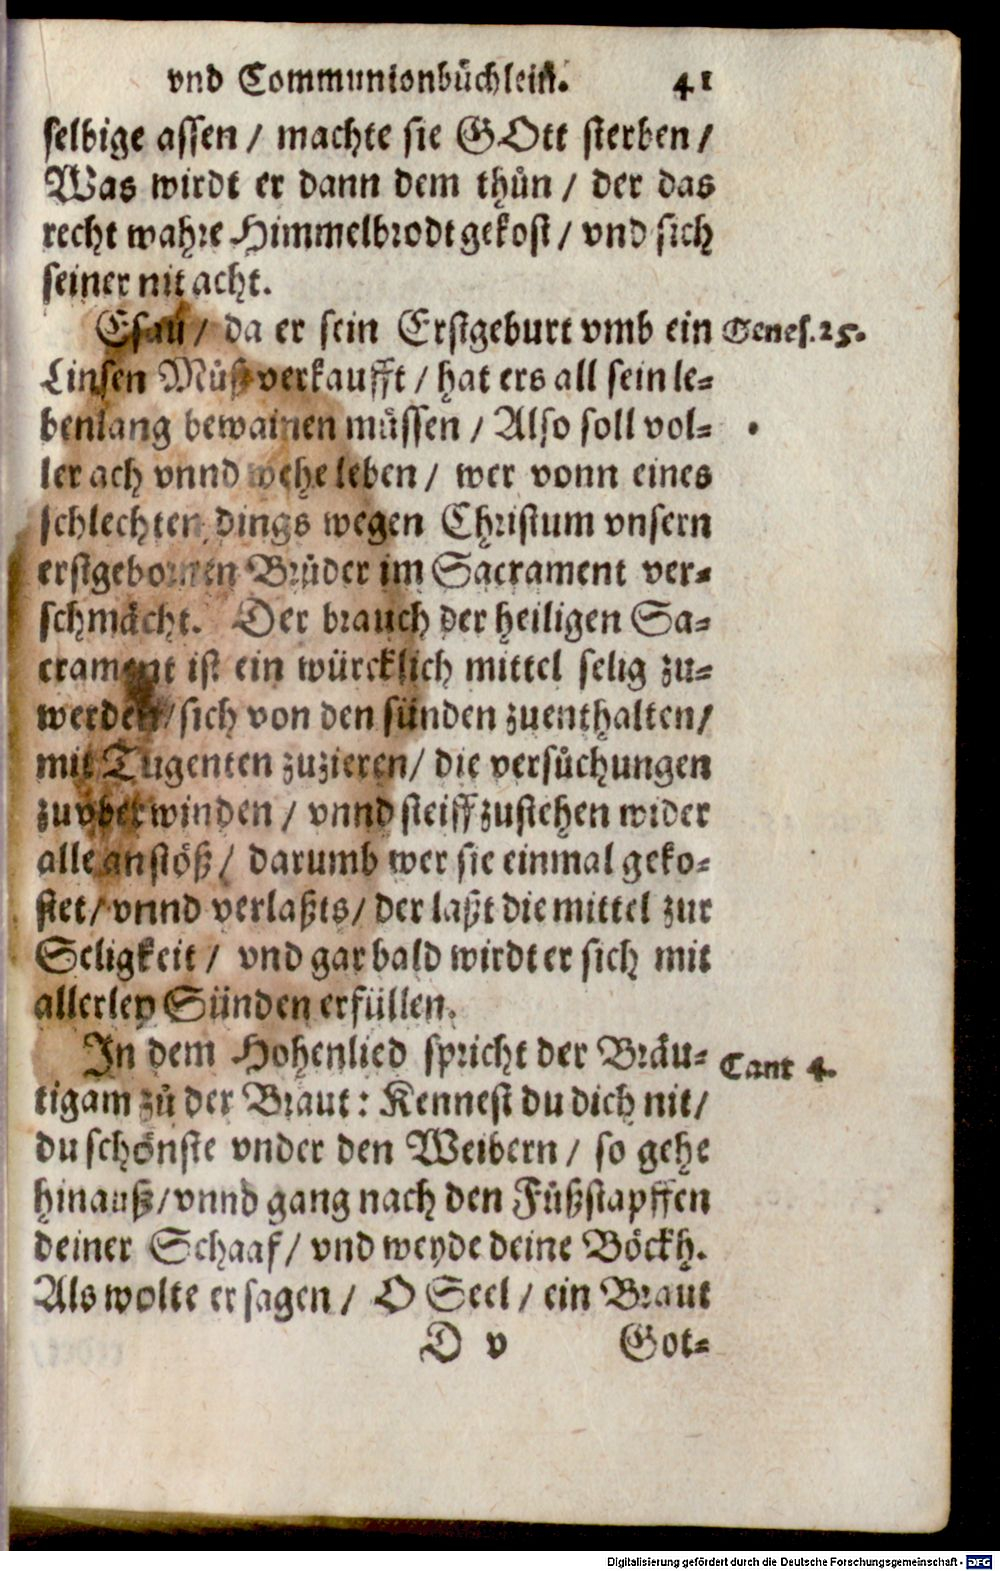 vnd Communionbüchlein. 41
selbige assen / machte sie GOtt sterben /
Was wirdt er dann dem thůn / der das
recht wahre Himmelbrodt gekost / vnd sich
seiner nit acht.
Esau / da er sein Erstgeburt vmb ein Genes. 25.
Linsen Můß verkaufft / hat ers all sein le-
benlang bewainen müssen / Also soll vol-
ler ach vnnd wehe leben / wer vonn eines
schlechten dings wegen Christum vnsern
erstgebornen Brůder im Sacrament ver-
schmächt. Der brauch der heiligen Sa-
crament ist ein würcklich mittel selig zu-
werden / sich von den sünden zuenthalten /
mit Tugenten zuzieren / die versůchungen
zuvberwinden / vnnd steiff zustehen wider
alle anstöß / darumb wer sie einmal geko-
stet / vnnd verlaßts / der laßt die mittel zur
Seligkeit / vnd gar bald wirdt er sich mit
allerley Sünden erfüllen.
In dem Hohenlied spricht der Bräu- Cant 4.
tigam zů der Braut: Kennest du dich nit /
du schönste vnder den Weibern / so gehe
hinauß / vnnd gang nach den Fůßstapffen
deiner Schaaf / vnd weyde deine Böckh.
Als wolte er sagen / O Seel / ein Braut
D v Got-
Digitalisierung gefördert durch die Deutsche Forschungsgemeinschaft - DFG